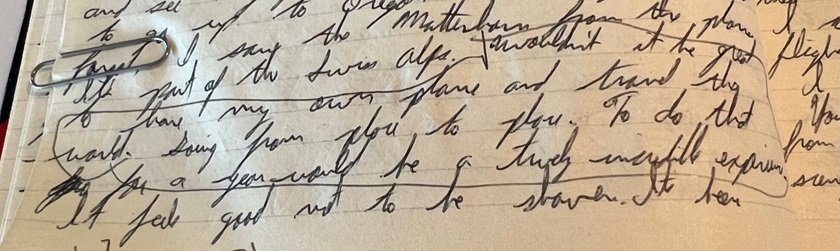 and see up to Orego
to go the Matterhorn from the plane I s
forest I saw the Wouldn't it be great fligh
left part of the Swiss Alps. I
to have my own plane and travel the You
world. Going from place to place. To do that from
for a year would be a truly incredible experien. scen
It feels good not to be shaven. It been